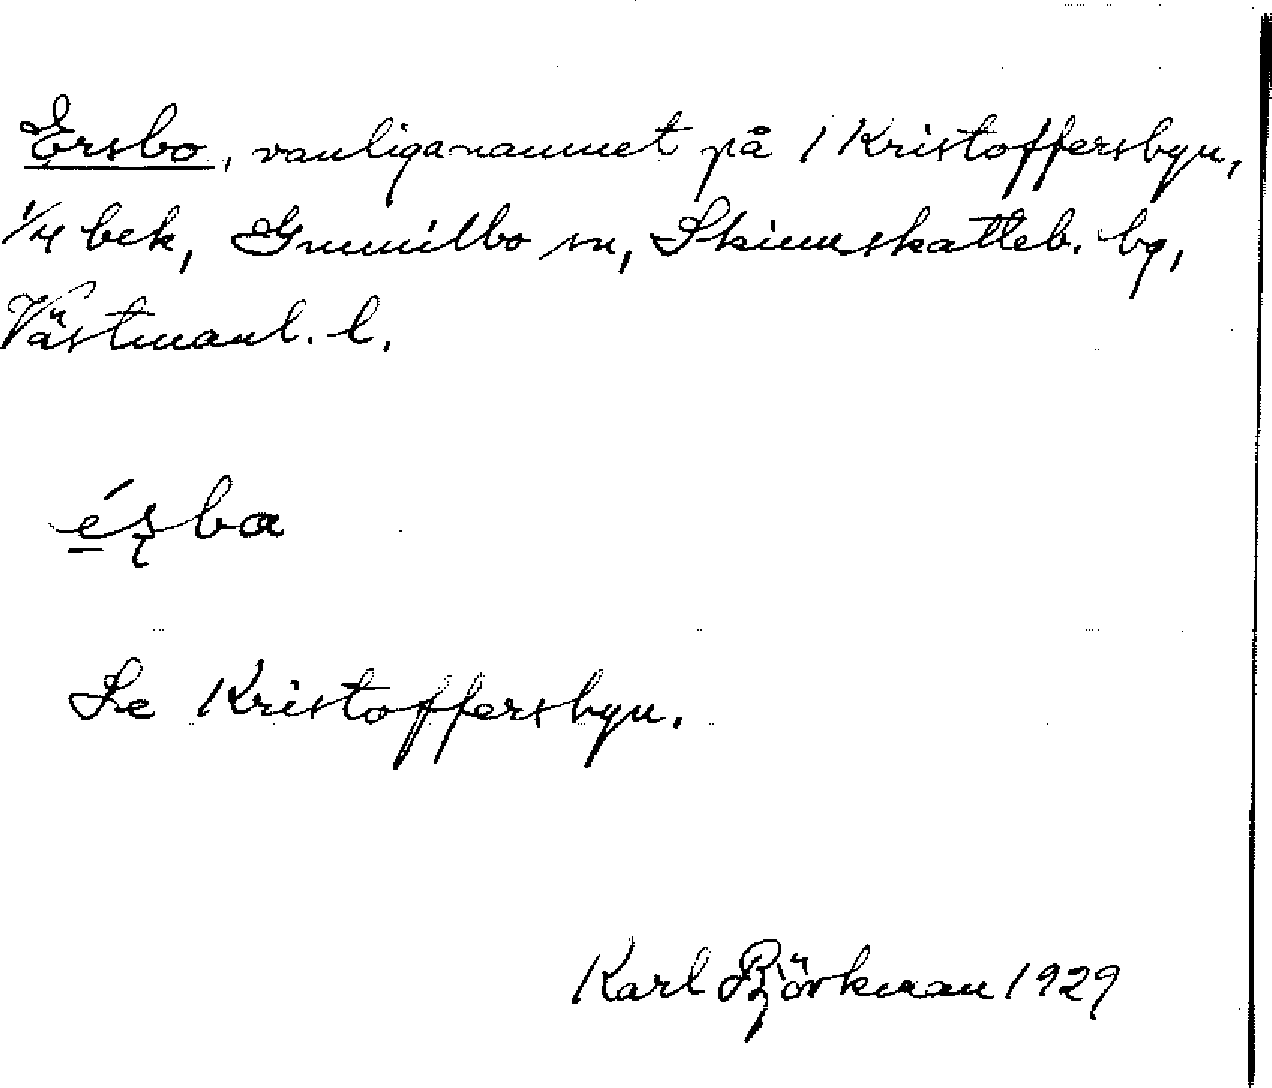 Ersbo, vanliga namnet på 1 Kristoffersbyn,
1/4 bek, Gunnilbo sn, Skinnskatteb. bg,
Västmanl. l.
é̱ʂba
Se Kristoffersbyn.
Karl Björkman 1929